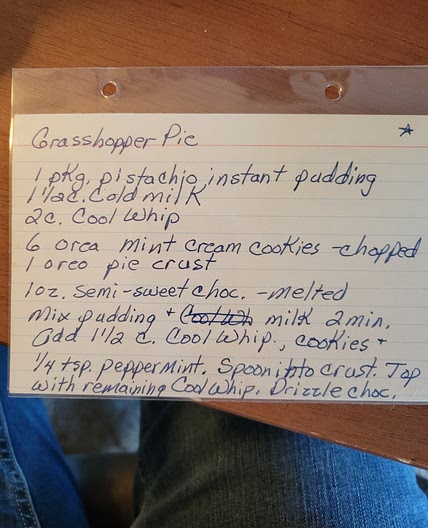 Grasshopper Pie
1 pkg. pistachio instant pudding
1 1/2c. Cold milk
2c. Cool Whip
6 orea mint cream cookies - chopped
1 oreo pie crust
1oz. semi-sweet choc. - melted
Mix pudding + Cool Wh milk 2 min.
Add 1 1/2 c. Cool Whip., cookies +
1/4 tsp. peppermint. Spoon into crust. Top
with remaining Cool Whip. Drizzle choc.